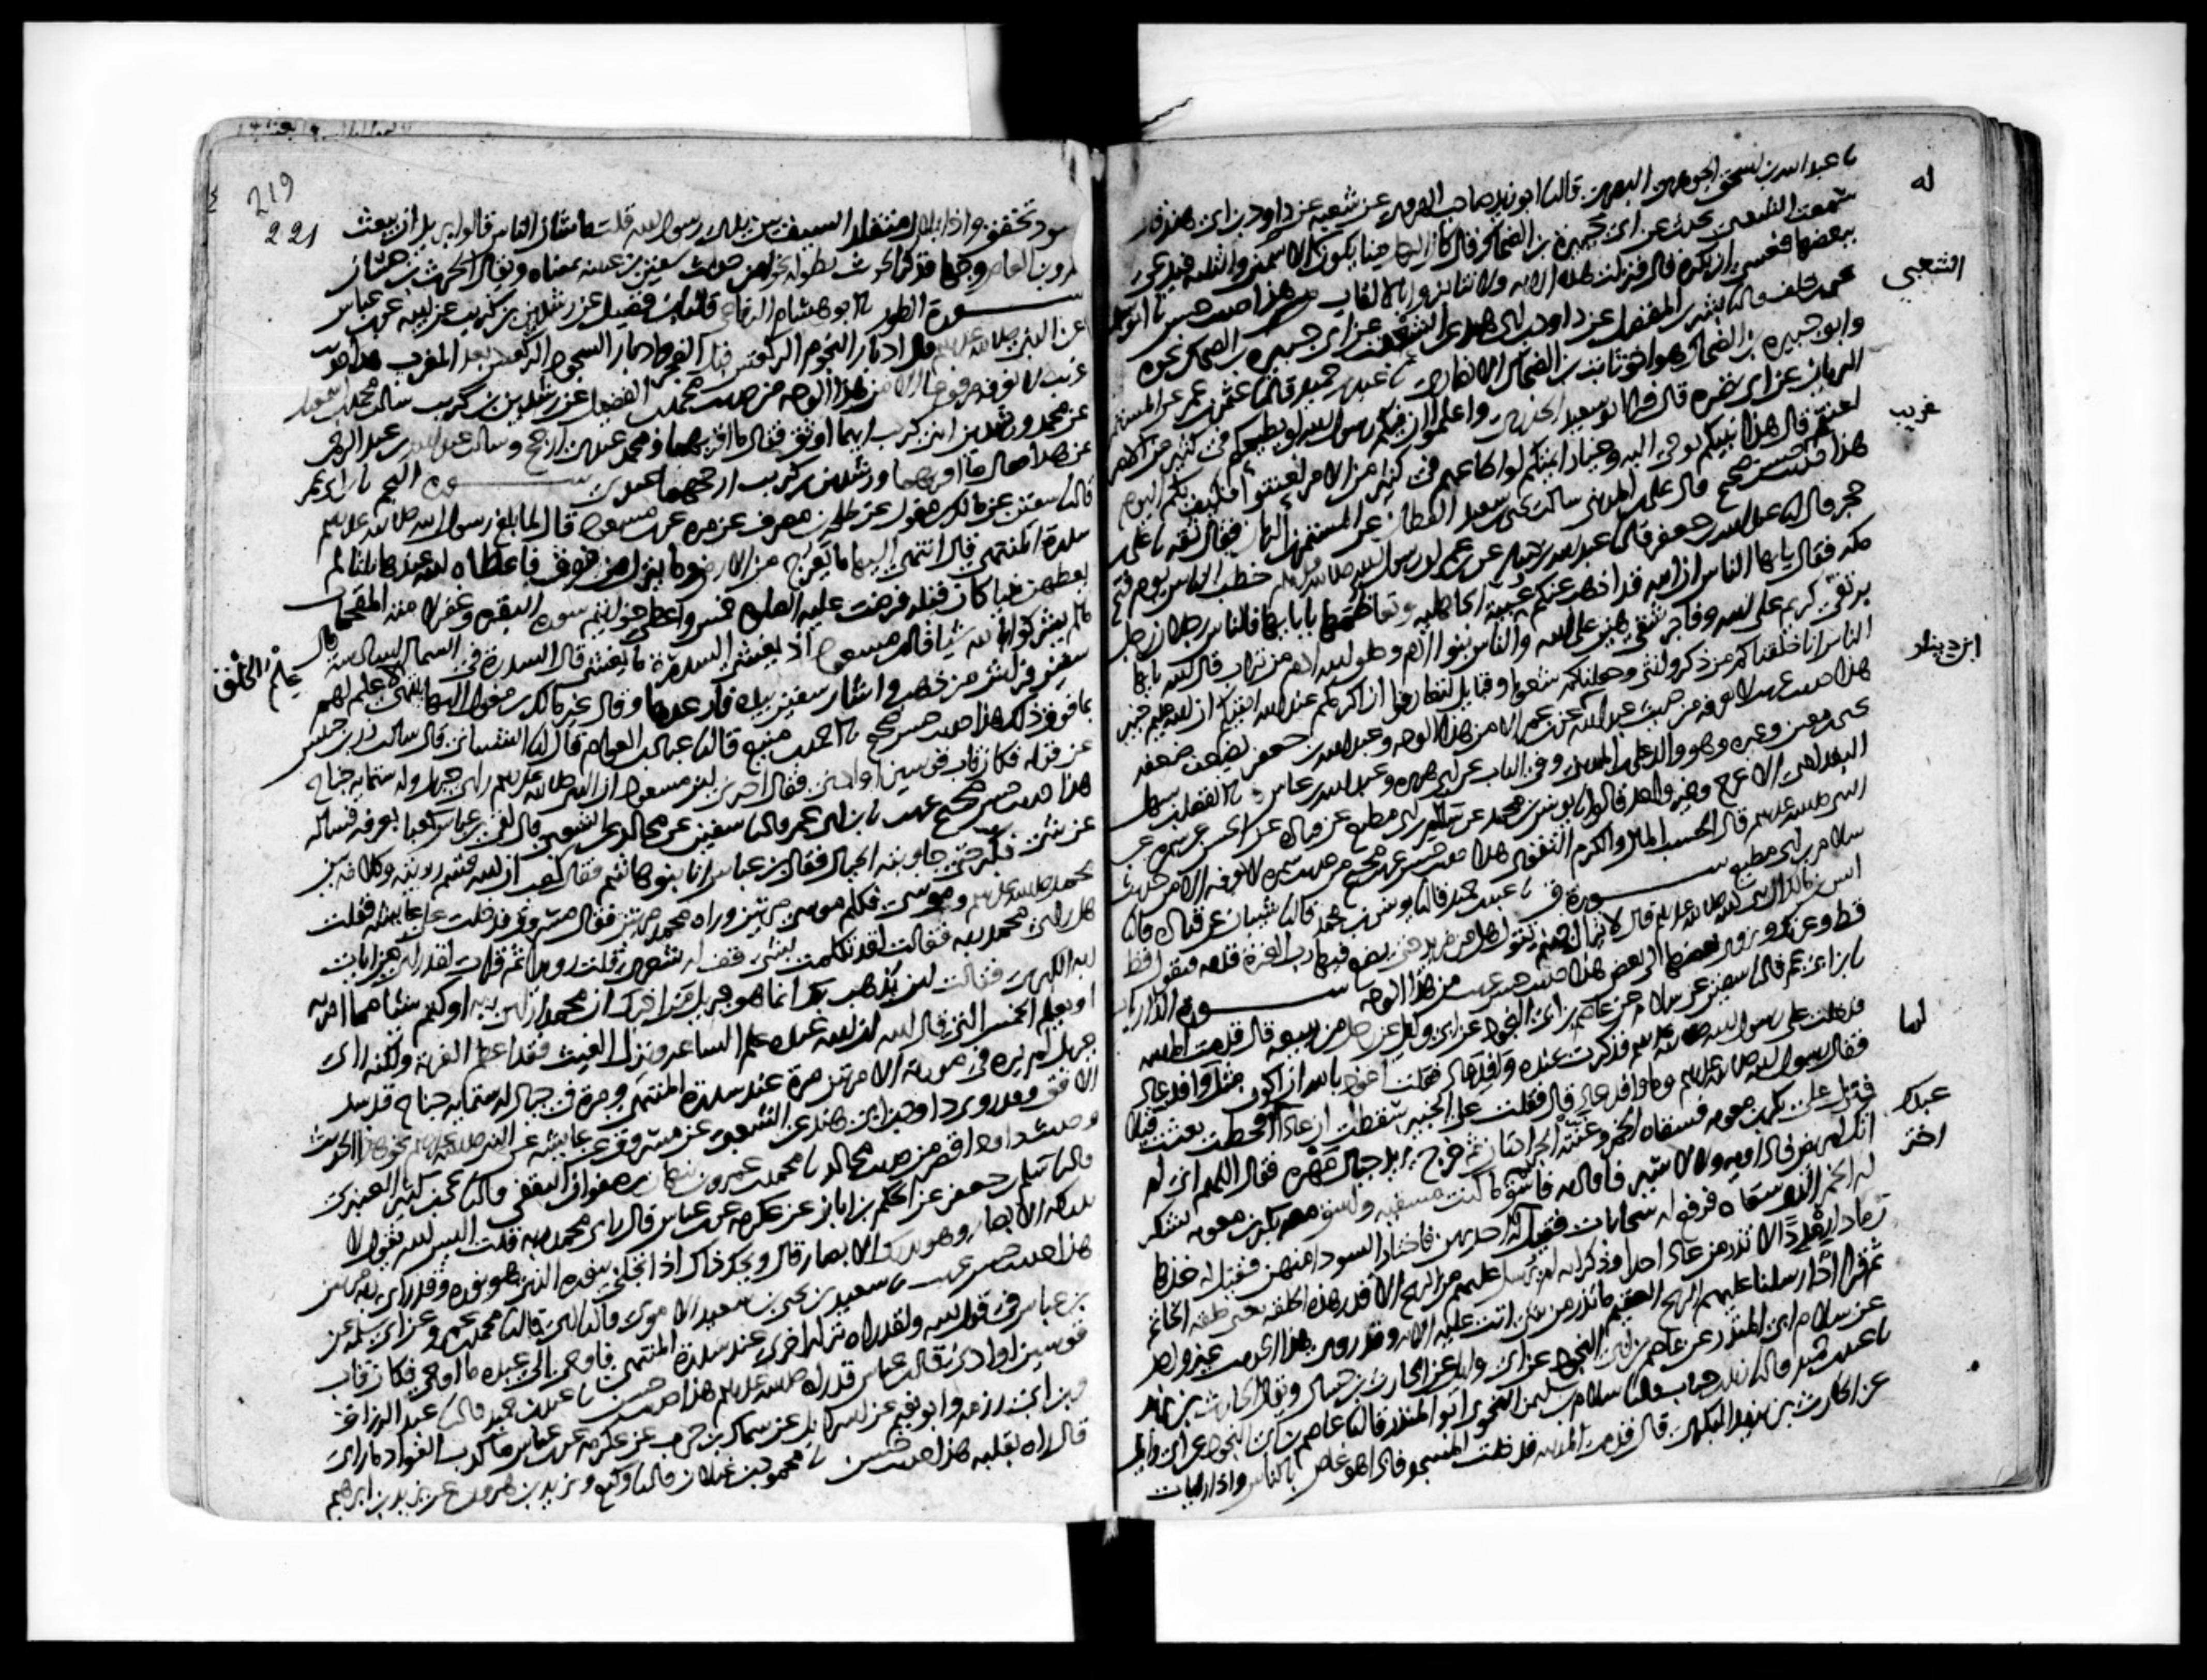 عبد الله بن اسحق الجوهري البصري قال ابو زيد صاحب الهروي عن شعبة عن داود بن ابي هند قال
سمعت الشعبي يحدث عن ابي جبيرة بن الضحاك قال كان الرجل منا يكون له الاسمين والثلثة فيدعى
ببعضها فعسى ان يكره قال فنزلت هذه الاية ولا تنابزوا بالالقاب هذا حديث حسن
خلف قال بشر بن المفضل عن داود بن ابي هند عن الشعبي عن ابي جبيرة بن الضحاك نحوه
وابو جبيرة بن الضحاك هو اخو ثابت بن الضحاك الانصاري عبد بن حميد قال عثمن بن عمر عن المستمر
الريان عن ابي نضرة قال قرا ابو سعيد الخدري واعلموا ان فيكم رسول الله لو يطيعكم في كثير من الامر
لعنتم قال هذا نبيكم يوحى اليه وخيار ائمتكم لو اطاعهم في كثير من الامر لعنتوا فكيف بكم اليوم
هذا حديث حسن صحيح قال علي بن المديني سالت يحيى بن سعيد القطان عن المستمر بن الريان فقال ثقة علي
حجر قال عبد الله بن جعفر قال عبد الله بن دينار عن ابن عمر ان رسول الله خطب الناس يوم فتح
مكة فقال يايها الناس ان الله قد اذهب عنكم عبية الجاهلية وتعاظمها بابائها فالناس رجلان رجل
بر تقي كريم على الله وفاجر شقي هين على الله والناس بنو ادم وخلق الله ادم من تراب قال الله يايها
الناس انا خلقناكم من ذكر وانثى وجعلناكم شعوبا وقبايل لتعارفوا ان اكرمكم عند الله اتقيكم ان الله عليم خبير
هذا حديث غريب لا نعرفه من حديث عبد الله بن دينار عن ابن عمر الا من هذا الوجه وعبد الله بن جعفر يضعف ضعفه
يحيى بن معين وغيره وهو والد علي بن المديني وفي الباب عن ابي هريرة وعبد الله بن عباس الفضل بن سهل
البغدادي الاعرج وغير واحد قالوا يونس بن محمد عن سلام بن ابي مطيع عن قتادة عن الحسن عن سمرة عن
النبي قال الحسب المال والكرم التقوى هذا حديث حسن غريب صحيح من حديث سمرة لا نعرفه الا من حديث
سلام بن ابي مطيع سورة ق عبد بن حميد قال يونس بن محمد قال شيبان عن قتادة قال
انس بن مالك ان نبي الله قال لا تزال جهنم تقول هل من مزيد حتى يضع فيها رب العزة قدمه فتقول قط
قط وعزتك ويزوى بعضها الى بعض هذا حديث حسن غريب من هذا الوجه سورة الذاريات
ابن ابي عمر قال سفين عن سلام عن عاصم بن ابي النجود عن ابي وايل عن رجل من ربيعة قال قدمت المدينة
فدخلت على رسول الله فذكرت عنده وافد عاد فقلت اعوذ بالله ان اكون مثل وافد عاد
فقال رسول الله وما وافد عاد قال فقلت على الخبير سقطت ان عادا لما قحطت بعثت قيلا
فنزل على بكر بن معوية فسقاه الخمر وغنته الجرادتان ثم خرج يريد جبال مهرة فقال اللهم اني لم
اتك لمريض فاداويه ولا لاسير فافاديه فاسق عبدك ما كنت مسقيه واسق معه بكر بن معوية يشكر
له الخمر الذي سقاه فرفع له سحابات فقيل له اختر احديهن فاختار السودا منهن فقيل له خذها
رمادا رمددا لا تذر من عاد احدا وذكر انه لم يرسل عليهم من الريح الا قدر هذه الحلقة يعني حلقة الخاتم
ثم قرا اذ ارسلنا عليهم الريح العقيم ما تذر من شي اتت عليه الاية وقد روى هذا الحديث غير واحد
عن سلام ابي المنذر عن عاصم بن ابي النجود عن ابي وايل عن الحارث بن حسان ويقال الحارث بن يزيد
عبد بن حميد قال زيد بن حباب قال سلام بن سليمن النحوي ابو المنذر قال عاصم بن ابي النجود عن ابي وايل
عن الحارث بن يزيد البكري قال قدمت المدينة فدخلت المسجد فاذا هو غاص بالناس واذا رايات
له
الشعبي
غريب
ابن دينار
لما
عبدك
اختر
219
221
سود تخفق واذا بلال متقلد السيف بين يدي رسول الله قلت ما شان الناس قالوا يريد ان يبعث
عمرو بن العاص وجها فذكر الحديث بطوله نحوا من حديث سفين بن عيينة بمعناه ويقال الحرث بن حسان
سورة الطور ابو هشام الرفاعي قال ابن فضيل عن رشدين بن كريب عن ابيه عن ابن عباس
عن النبي قال ادبار النجوم الركعتين قبل الفجر وادبار السجود الركعتين بعد المغرب هذا حديث
غريب لا نعرفه مرفوعا الا من هذا الوجه من حديث محمد بن الفضيل عن رشدين بن كريب سالت محمد بن اسمعيل
عن محمد ورشدين ابني كريب ايهما اوثق فقال ما اقربهما ومحمد عندي ارجح وسالت عبد الله بن عبد الرحمن
عن هذا فقال ما اقربهما ورشدين بن كريب ارجحهما عندي سورة النجم ابن ابي عمر
قال سفين عن مالك بن مغول عن طلحة بن مصرف عن مرة عن ابن مسعود قال لما بلغ رسول الله
سدرة المنتهى قال انتهى اليها ما يعرج من الارض وما ينزل من فوق فاعطاه الله عندها ثلثا لم
يعطهن نبيا كان قبله فرضت عليه الصلوة خمسا واعطي خواتيم سورة البقرة وغفر لامته المقحمات
ما لم يشركوا بالله شيا قال ابن مسعود اذ يغشى السدرة ما يغشى قال السدرة في السماء السادسة قال
سفين فراش من ذهب واشار سفين بيده فارعدها وقال غير مالك بن مغول اليها ينتهي علم لهم
علم الخلق
بما فوق ذلك هذا حديث حسن صحيح احمد بن منيع قال عباد بن العوام قال الشيباني قال سالت زر بن حبيش
عن قوله فكان قاب قوسين او ادنى فقال اخبرني ابن مسعود ان النبي راى جبريل وله ستماية جناح
هذا حديث حسن صحيح غريب ابن ابي عمر قال سفين عن مجالد عن الشعبي قال لقي ابن عباس كعبا بعرفة فساله
عن شي فكبر حتى جاوبته الجبال فقال ابن عباس انا بنو هاشم فقال كعب ان الله قسم رويته وكلامه بين
محمد وموسى فكلم موسى مرتين وراه محمد مرتين فقال مسروق فدخلت على عايشة فقلت
هل راى محمد ربه فقالت لقد تكلمت بشي قف له شعري قلت رويدا ثم قرات لقد راى من ايات
ربه الكبرى فقالت اين يذهب بك انما هو جبريل من اخبرك ان محمدا راى ربه او كتم شيئا مما امر به
او يعلم الخمس التي قال الله ان الله عنده علم الساعة وينزل الغيث فقد اعظم الفرية ولكنه راى
جبريل لم يره في صورته الا مرتين مرة عند سدرة المنتهى ومرة في جياد له ستماية جناح قد سد
الافق وقد روى داود بن ابي هند عن الشعبي عن مسروق عن عايشة عن النبي نحو هذا الحديث
وحديث داود اقصر من حديث مجالد محمد بن عمرو بن نبهان بن صفوان الثقفي قال يحيى بن كثير العنبري
قال سلم بن جعفر عن الحكم بن ابان عن عكرمة عن ابن عباس قال راى محمد ربه قلت اليس الله يقول لا
تدركه الابصار وهو يدرك الابصار قال ويحك ذاك اذا تجلى بنوره الذي هو نوره وقد راى ربه مرتين
هذا حديث حسن غريب سعيد بن يحيى بن سعيد الاموي قال ابي قال محمد بن عمرو عن ابي سلمة عن
ابن عباس في قول الله ولقد راه نزلة اخرى عند سدرة المنتهى فاوحى الى عبده ما اوحى فكان قاب
قوسين او ادنى قال ابن عباس قد راه هذا حديث حسن عبد بن حميد قال عبد الرزاق
وابن ابي رزمة وابو نعيم عن اسرايل عن سماك بن حرب عن عكرمة عن ابن عباس ما كذب الفواد ما راى
قال راه بقلبه هذا حديث حسن محمود بن غيلان قال وكيع ويزيد بن هرون عن يزيد بن ابرهيم